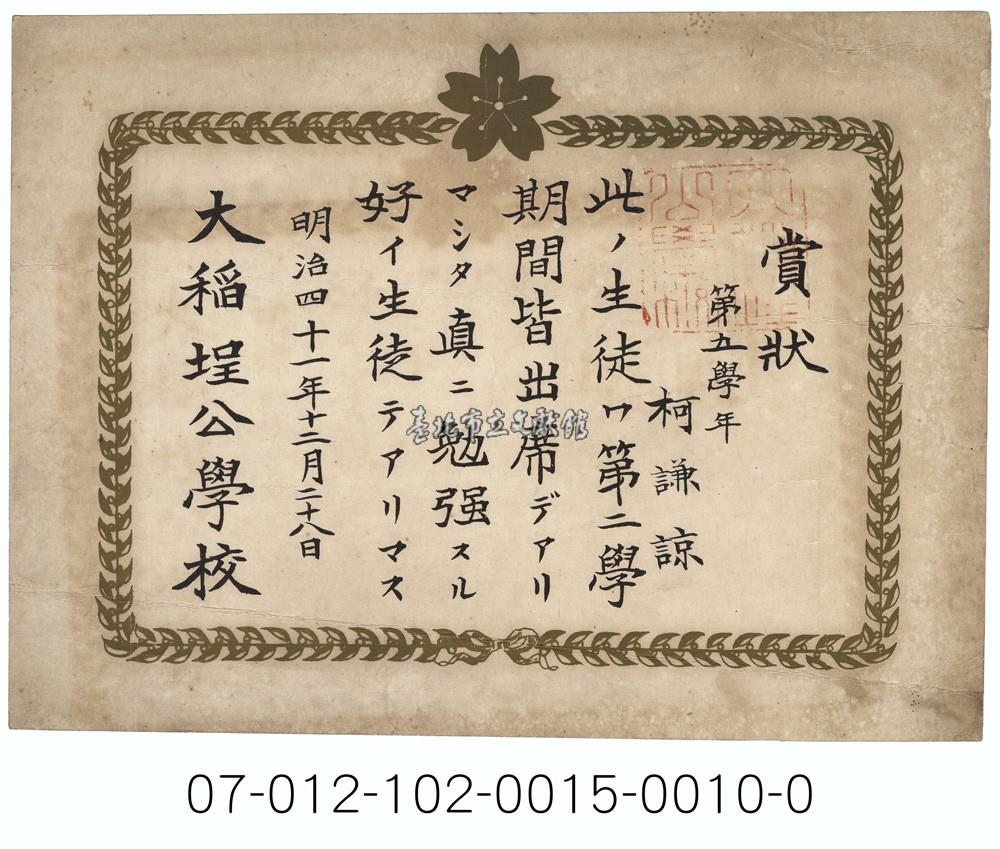 賞狀
第五學年
柯謙諒
此ノ生徒ワ第二學
期間皆出席デアリ
マシタ真ニ勉强スル
好イ生徒デアリマス
明治四十一年十二月二十八日
大稲埕公學校
臺北市立文獻館
07-012-102-0015-0010-0